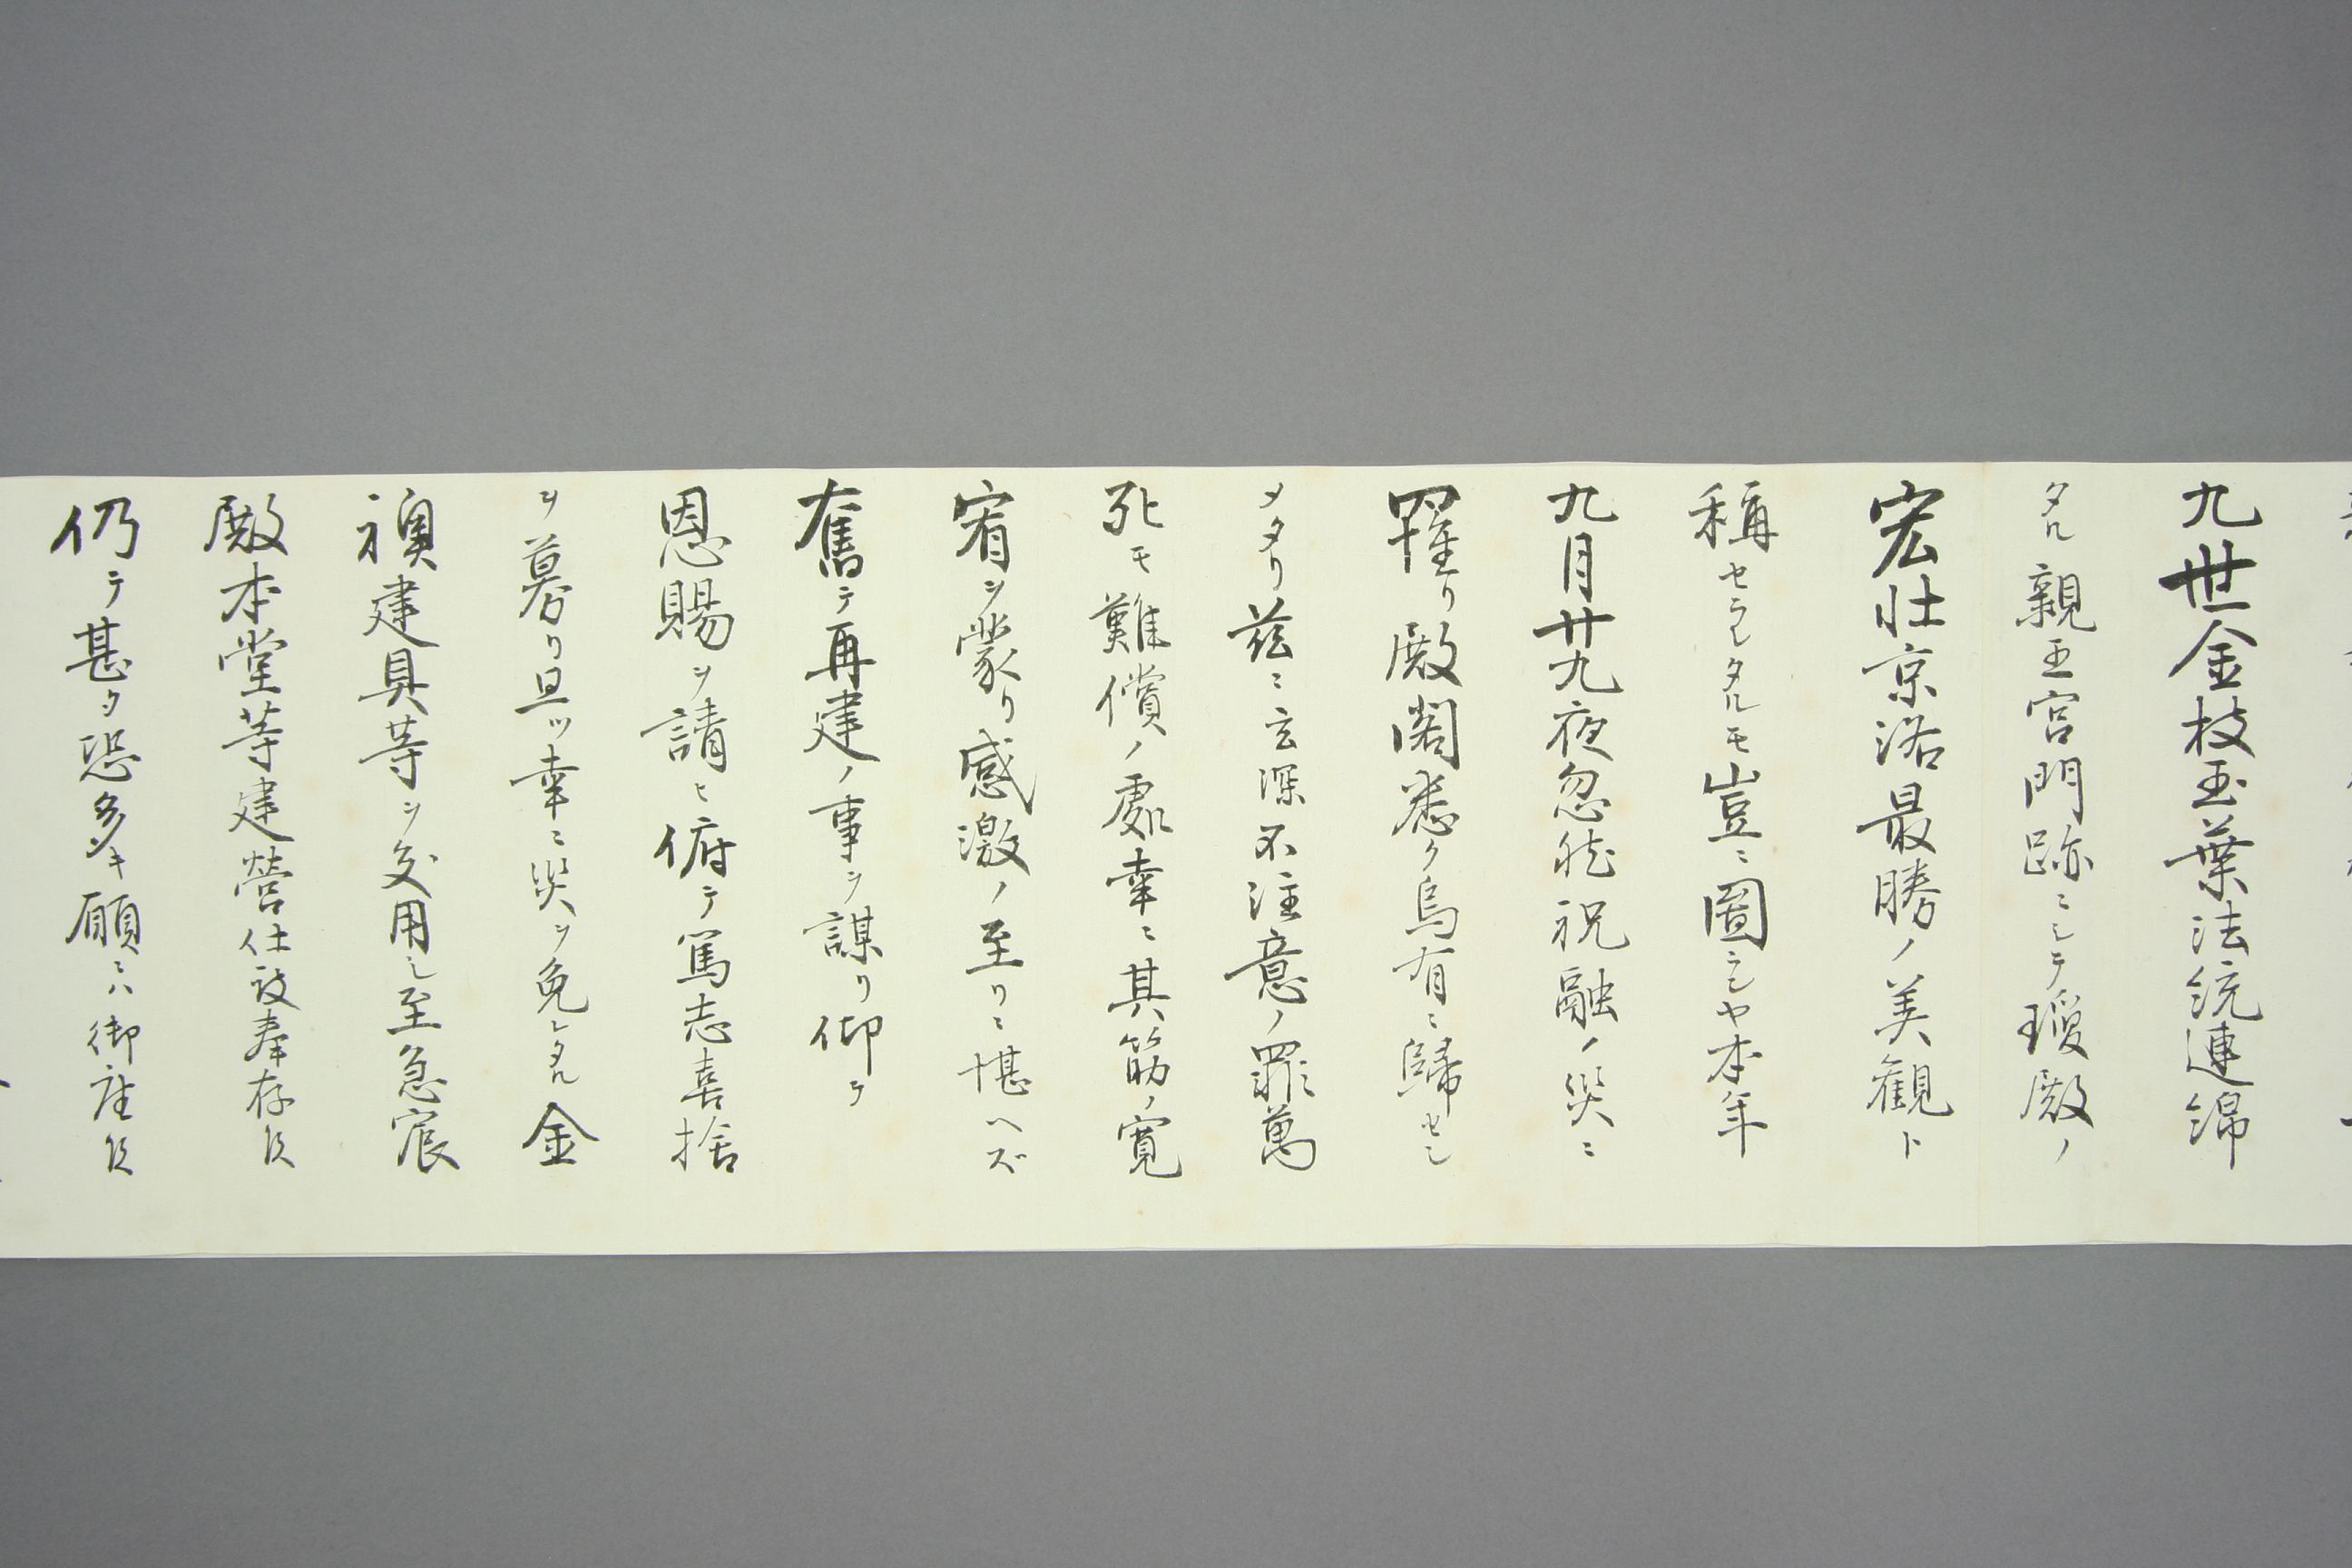 九世金枝玉葉法統連綿
タル親王宮門跡ニシテ瓊殿ノ
宏壮京洛最勝ノ美観ト
稱セラレタルモ豈ニ圖ラシヤ本年
九月廿九夜忽然祝融ノ災ニ
罹リ殿閣悉ク烏有ニ歸セシ
メタリ茲ニ玄深不注意ノ罪萬
死モ難償ノ處幸ニ其筋ノ寛
宥ヲ蒙リ感激ノ至リニ堪ヘズ
奮テ再建ノ事ヲ謀リ仰テ
恩賜ヲ請ヒ俯テ篤志喜捨
ヲ募リ且ツ幸ニ災ヲ免レタル金
襖建具等ヲ交用シ至急宸
殿本堂等建營仕設奉存候
仍テ甚タ恐多キ願ニハ御座候